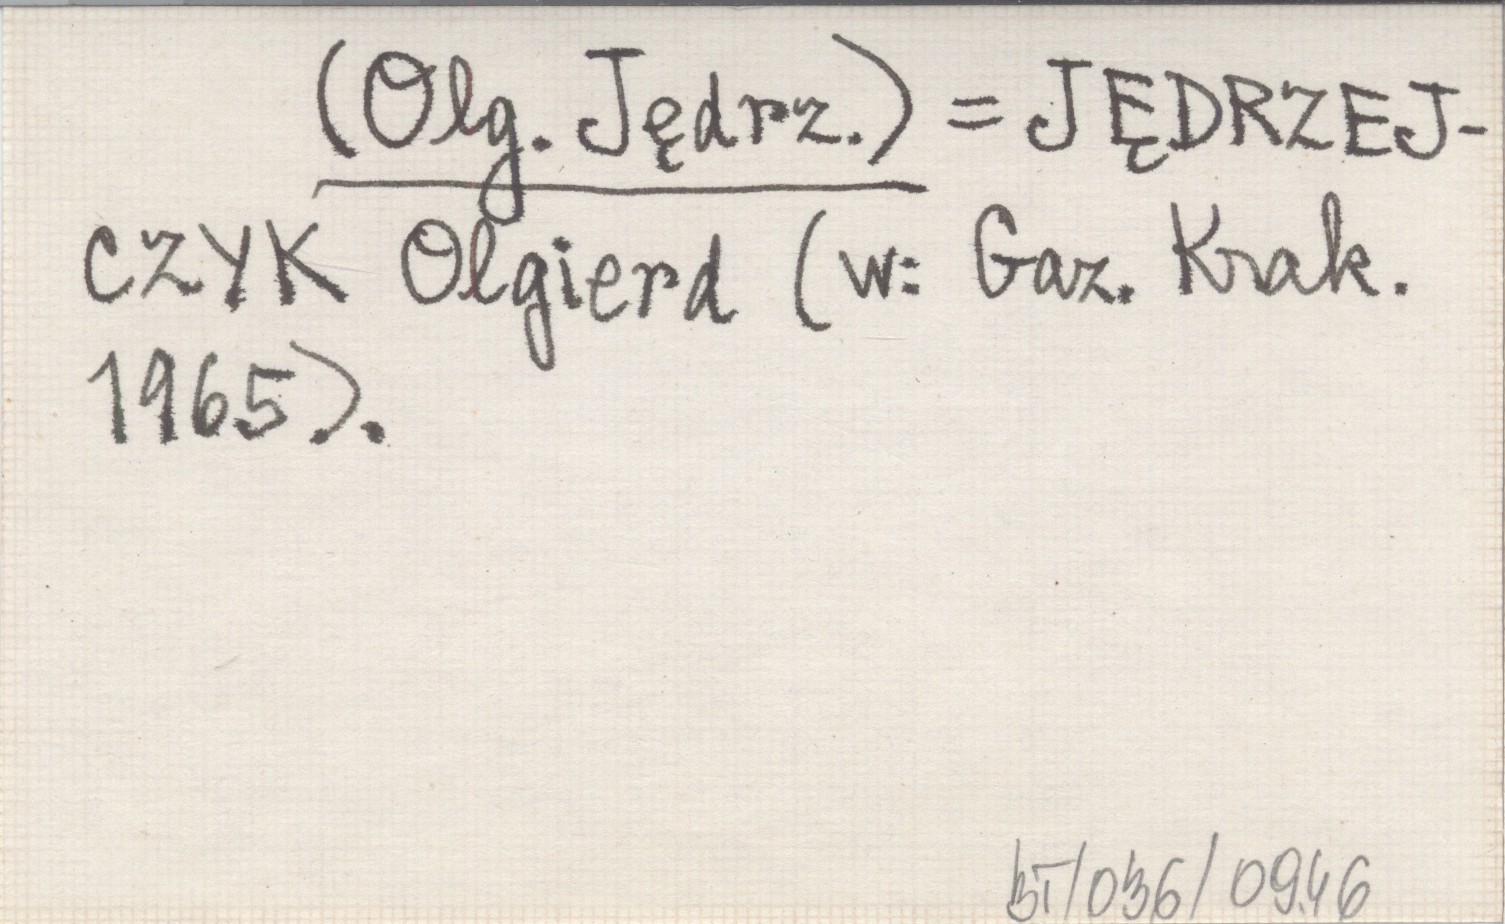 (Olg. Jędrz.) = JĘDRZEJ-
CZYK Olgierd (w: Gaz. Krak.
1965).
/036/